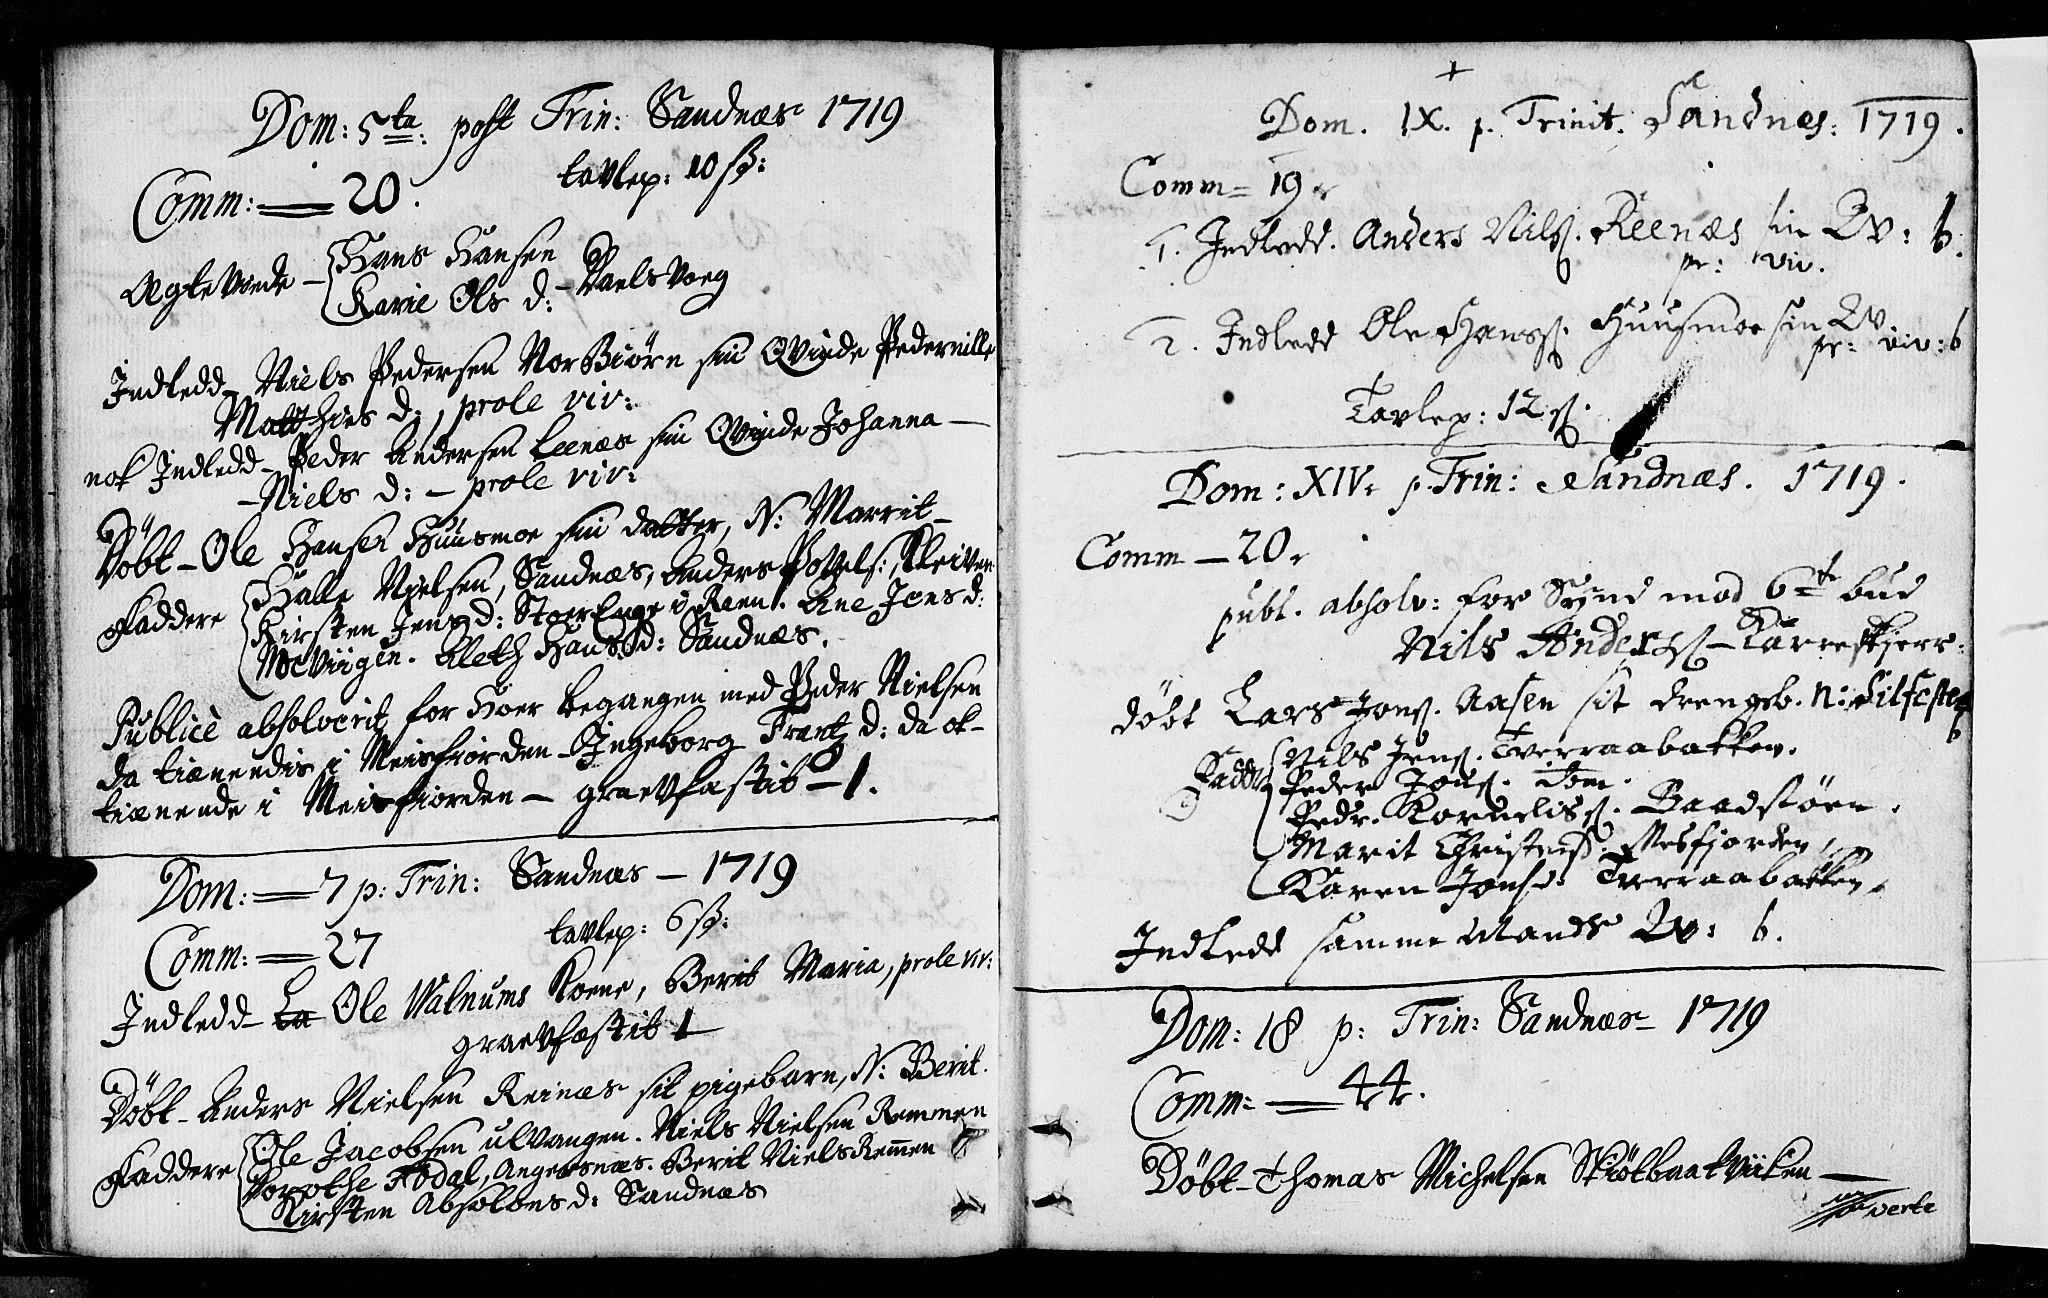 Dom: 5ta: post Trin: Sandnæs 1719
Comm: — 20. tavlep: 10 sß:
Ægteviede – Hans Hansen
Karie Ols d: –
Indledd – Niels Pedersen NorBiörn sin Qvinde Pedernille
Matthies d:, prole viv:
nok Indledd – Peder Andersen Leenæs sin Qvinde Johanna –
– Niels d: – prole viv:
Döbt – Ole Hansen Huusmoe sin datter, N: Marrit –
Faddere Halle Nielsen, Sandnæs, Anders Povels: Kleiven
Kirsten Jens d: StoerEnge i Reen. Ane Jens d:
Aleth Hans d: Sandnæs.
Publicè absolverit for Hoer begangen med Peder Nielsen
da tiænendis i Meisfiorden – Ingeborg Frantz d: da ok –
tiænende i Meisfiorden – graevfæstit – 1.
Dom: — 7 p: Trin: Sandnæs – 1719
Comm: — 27 tavlep: 6 sß:
Indledd – La Ole Walnums Kone, Berit Maria, prole viv:
graevfæstit 1 –
Döbt – Anders Nielsen Reinæs sit pigebarn, N: Berit.
Faddere Ole Jacobsen ulvangen. Niels Nielsen Remmen
Dorothe Fodal, Angersnæs. Berit Niels Remmen
Kirsten Absolons d: Sandnæs
Dom. IX. p. Trinit. Sandnæs: 1719.
Comm = 19.
1. Indledd. Anders Nilss. Reenæs sin Qv: b.
pr: viv.
2. Indledd Ole Hanss. Huusmoe sin Qv.
pr: viv: b
Tavlep: 12 s.
Dom: XIV. p. Trin: Sandnæs. 1719.
Comm – 20.
publ. absolv: for Synd mod 6te bud
Nils Anderss –
döbt Lars Jons. Aasen sit drengeb. N: Silfester
Fadd: Nils Jens. Tverraabakken.
Peder Jons. Tom.
Pedr. Korneliss. Baadstöen.
Marit Christens. Mesfjorden,
Karen Jonsd. Tverraabakken.
Indledd samme Mands Qv: b.
Dom: 18 p: Trin: Sandnæs – 1719
Comm: — 44.
Döbt – Thomas Michelsen Skiötbaakviiken –
verte